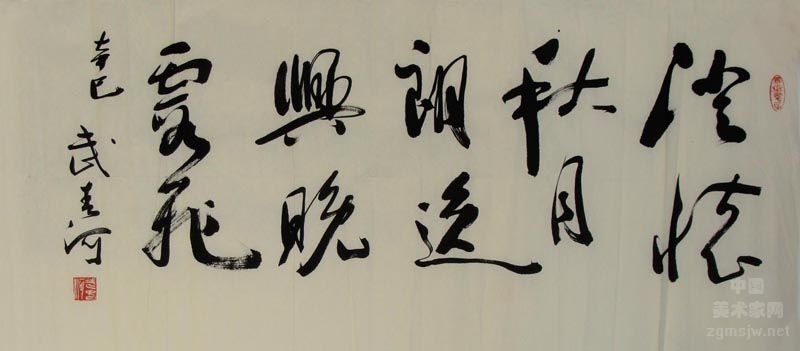 澄懷
秋月
朗逸
興晚
霞飛
辛巳 武春河
中国
美术家网
zgmsjw.net